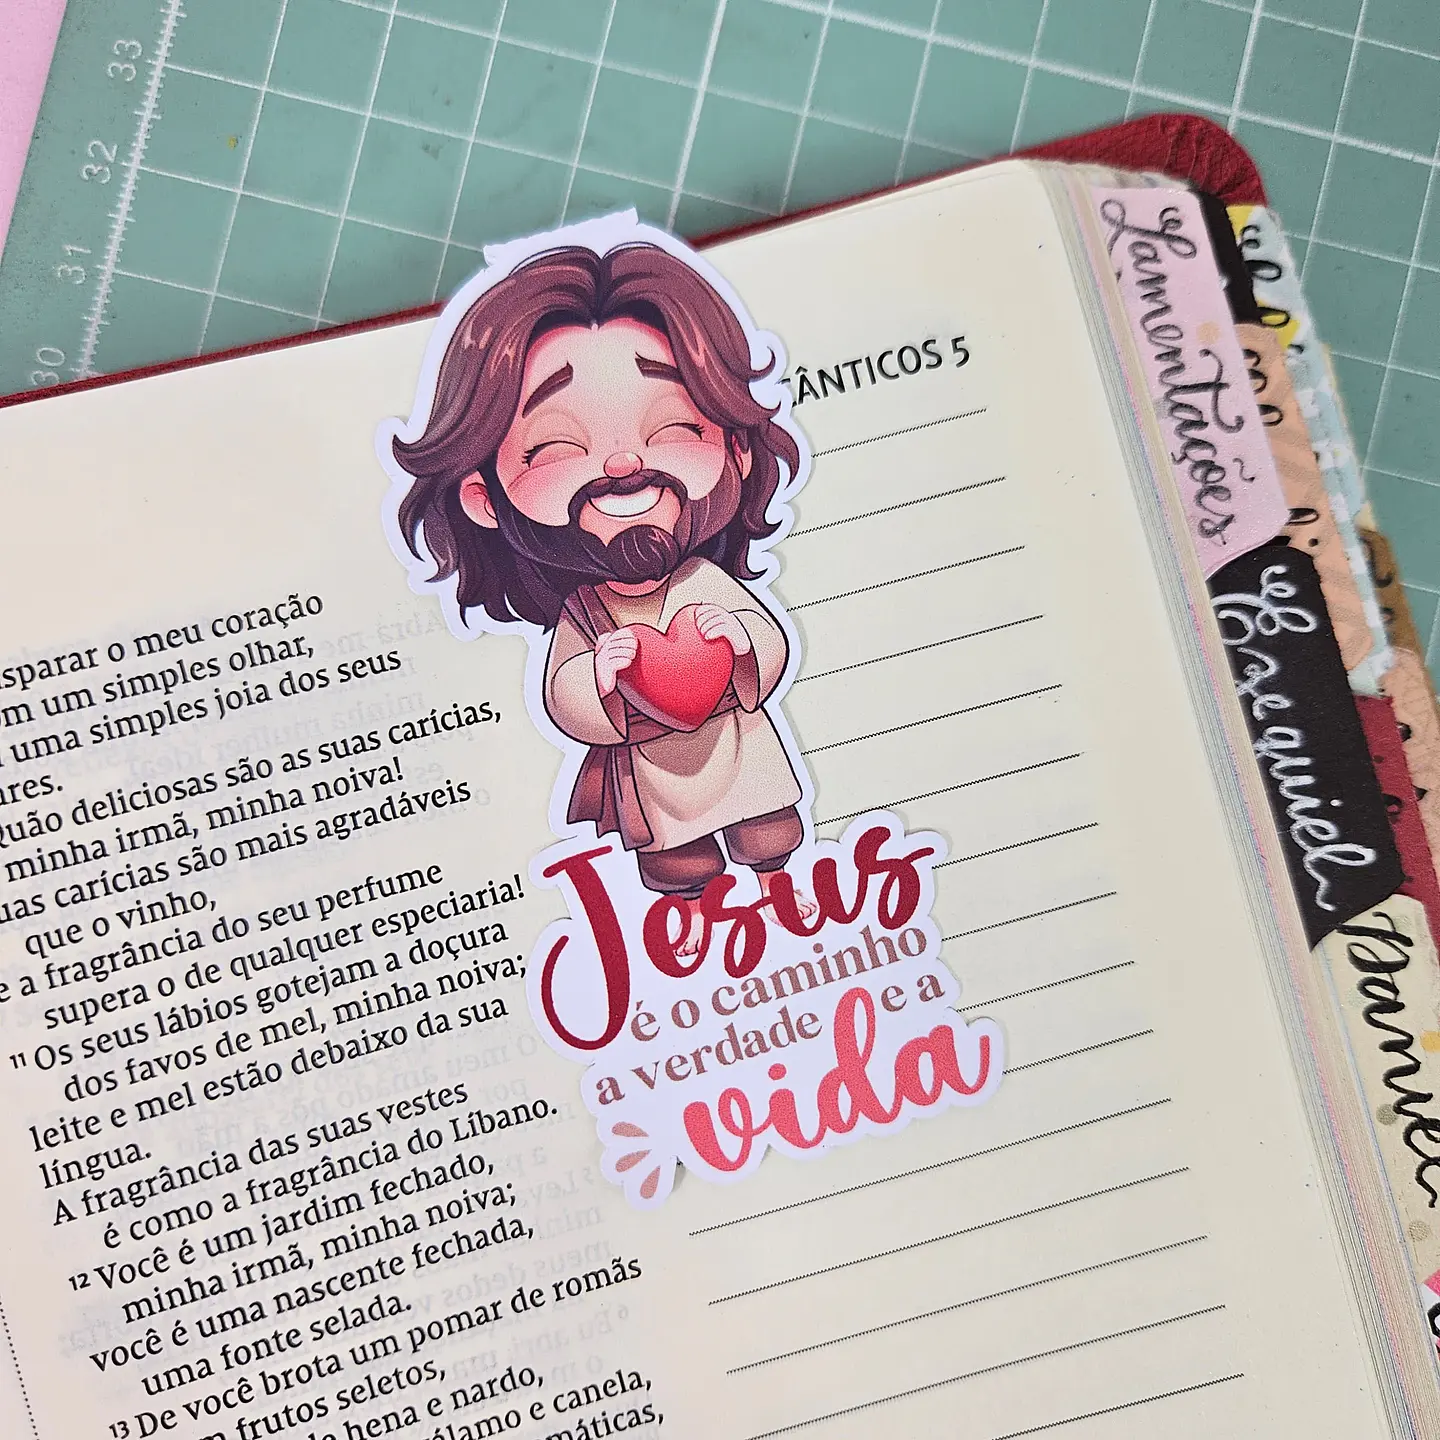 33
32
31
30
CÂNTICOS 5
o meu coração
um simples olhar,
uma simples joia dos seus
Quão deliciosas são as suas carícias,
minha irmã, minha noiva!
suas carícias são mais agradáveis
que o vinho,
e a fragrância do seu perfume
supera o de qualquer especiaria!
11 Os seus lábios gotejam a doçura
dos favos de mel, minha noiva;
leite e mel estão debaixo da sua
língua.
A fragrância das suas vestes
é como a fragrância do Líbano.
12 Você é um jardim fechado,
minha irmã, minha noiva;
você é uma nascente fechada,
uma fonte selada.
13 De você brota um pomar de romãs
frutos seletos,
hena e nardo,
e canela,
Jesus
é o caminho
a verdade e a
vida
Lamentações
Ezequiel
Daniel